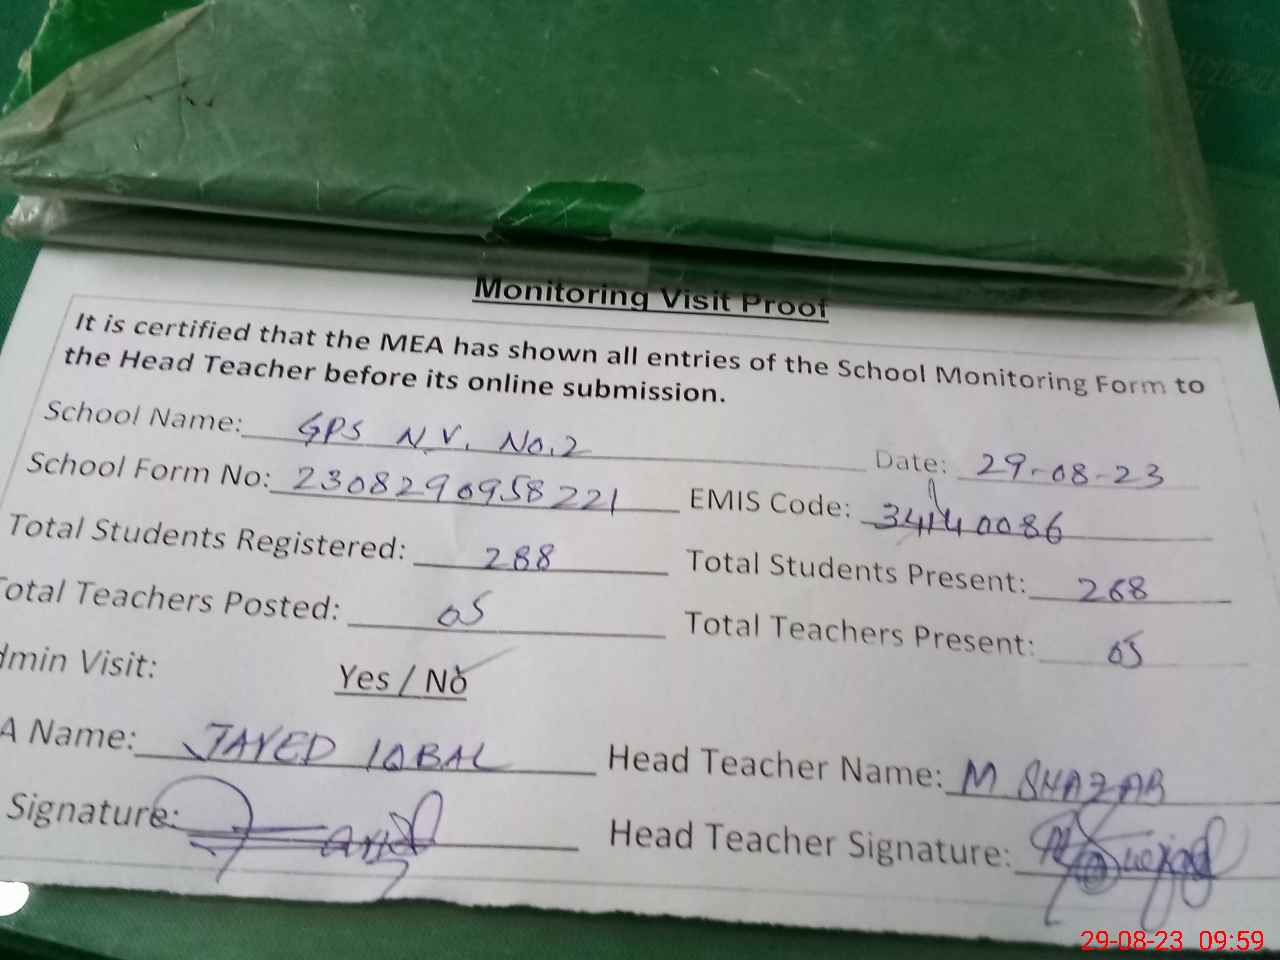 Monitoring Visit Proof
It is certified that the MEA has shown all entries of the School Monitoring Form to
the Head Teacher before its online submission.
School Name: GPS N.V. No.2 Date: 29-08-23
School Form No: 2308290958221 EMIS Code: 34140086
Total Students Registered: 288 Total Students Present: 268
Total Teachers Posted: 05 Total Teachers Present: 05
dmin Visit: Yes / No
A Name: JAVED IQBAL Head Teacher Name: M
Signature: Head Teacher Signature:
29-08-23 09:59